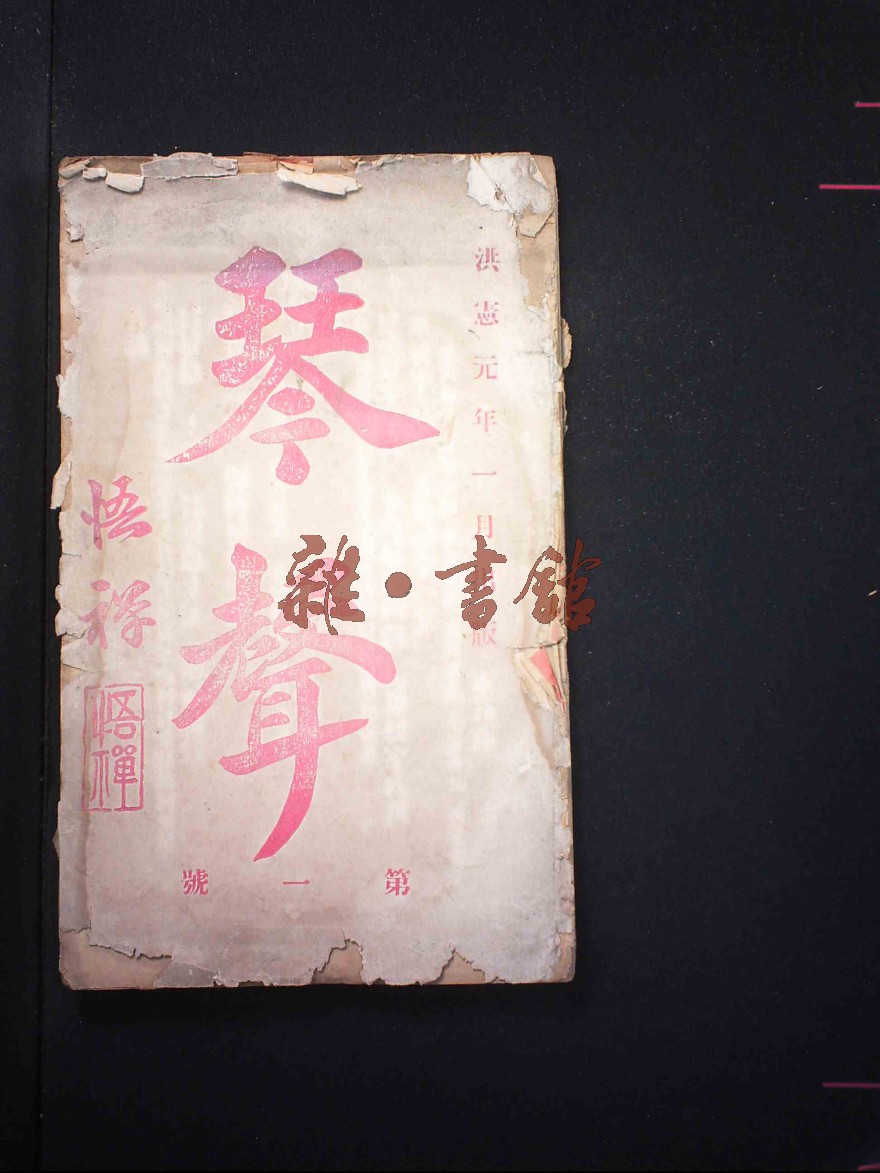 洪憲元年一月出版
琴聲
悟禅
悟禪
第一號
雜·書館